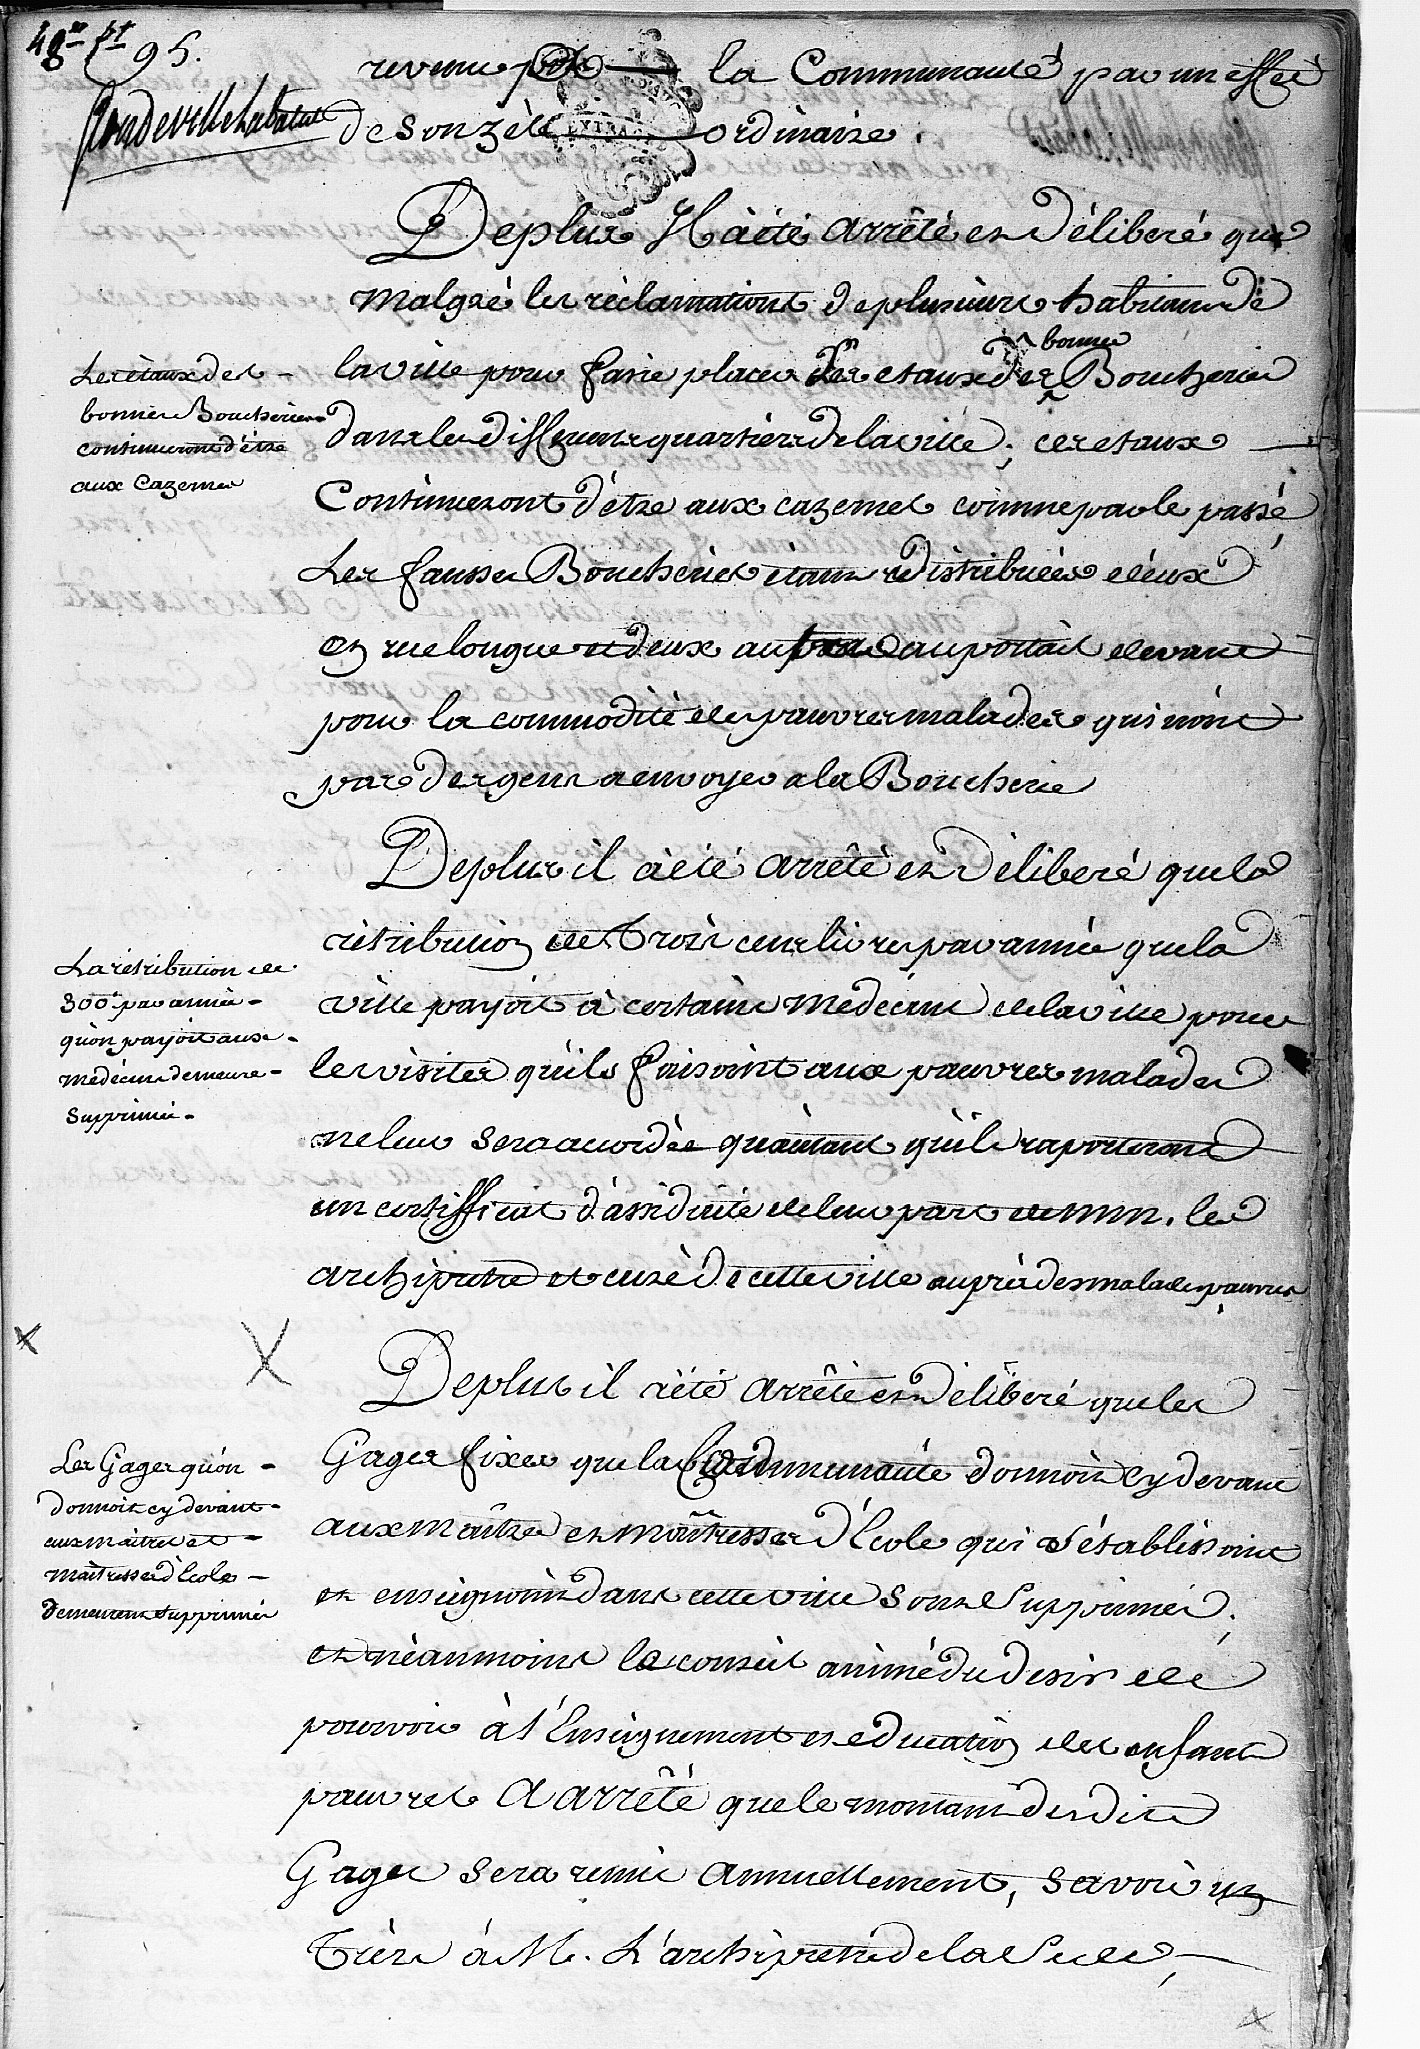 48e ft 95.
revenu pour la Communauté par un effet
de son zèle ordinaire.
EXTRA
De plus Il à été arrêté et Déliberé que
Malgré les réclamations de plusieurs habitans de
Les étaux des -
bonnes Boucheries
continueront d'être
aux Cazernes
la ville pour faire placer Les etaux des bonnes Boucheries
dans les differens quartiers de la ville; ces etaux
Continueront d'être aux cazernes comme par le passé,
Les fausses Boucheries etant redistribuées deux
en rue longue et deux au portail devant
pour la commodité des pauvres malades qui n'ont
pas des gens a envoyer a la Boucherie
De plus il à été arrêté et Déliberé que la
La rétribution de
300 par année -
qu'on payoit aux -
médecins demeure -
supprimée -
rétribution de Trois cens livres par année que la
ville payoit à certains Médecins de la ville pour
les visites qu'ils faisoint aux pauvres malades
ne leur sera accordée qu'autant qu'ils raporteront
un certifficat d'assiduité de leur part de mm. les
archiprêtre et curé de cette ville auprès des malades pauvres
De plus il a été arrêté et Déliberé que les
Les Gages qu'on -
donnoit cy devant -
aux maitres et -
maitresses d'Ecole -
demeurent supprimés
Gages fixes que la Communauté donnoit cy devant
aux Maîtres et Maîtresses d'Ecole qui s'établissoint
et enseignoint dans cette ville sont Supprimés;
et néanmoins le conseil animé du desir de
pourvoir à l'Enseignement et education des enfans
pauvres A arrêté que le montant desdits
Gages sera remis Annuellement, savoir un
Tiers à M. L'archiprêtre de la Sède,